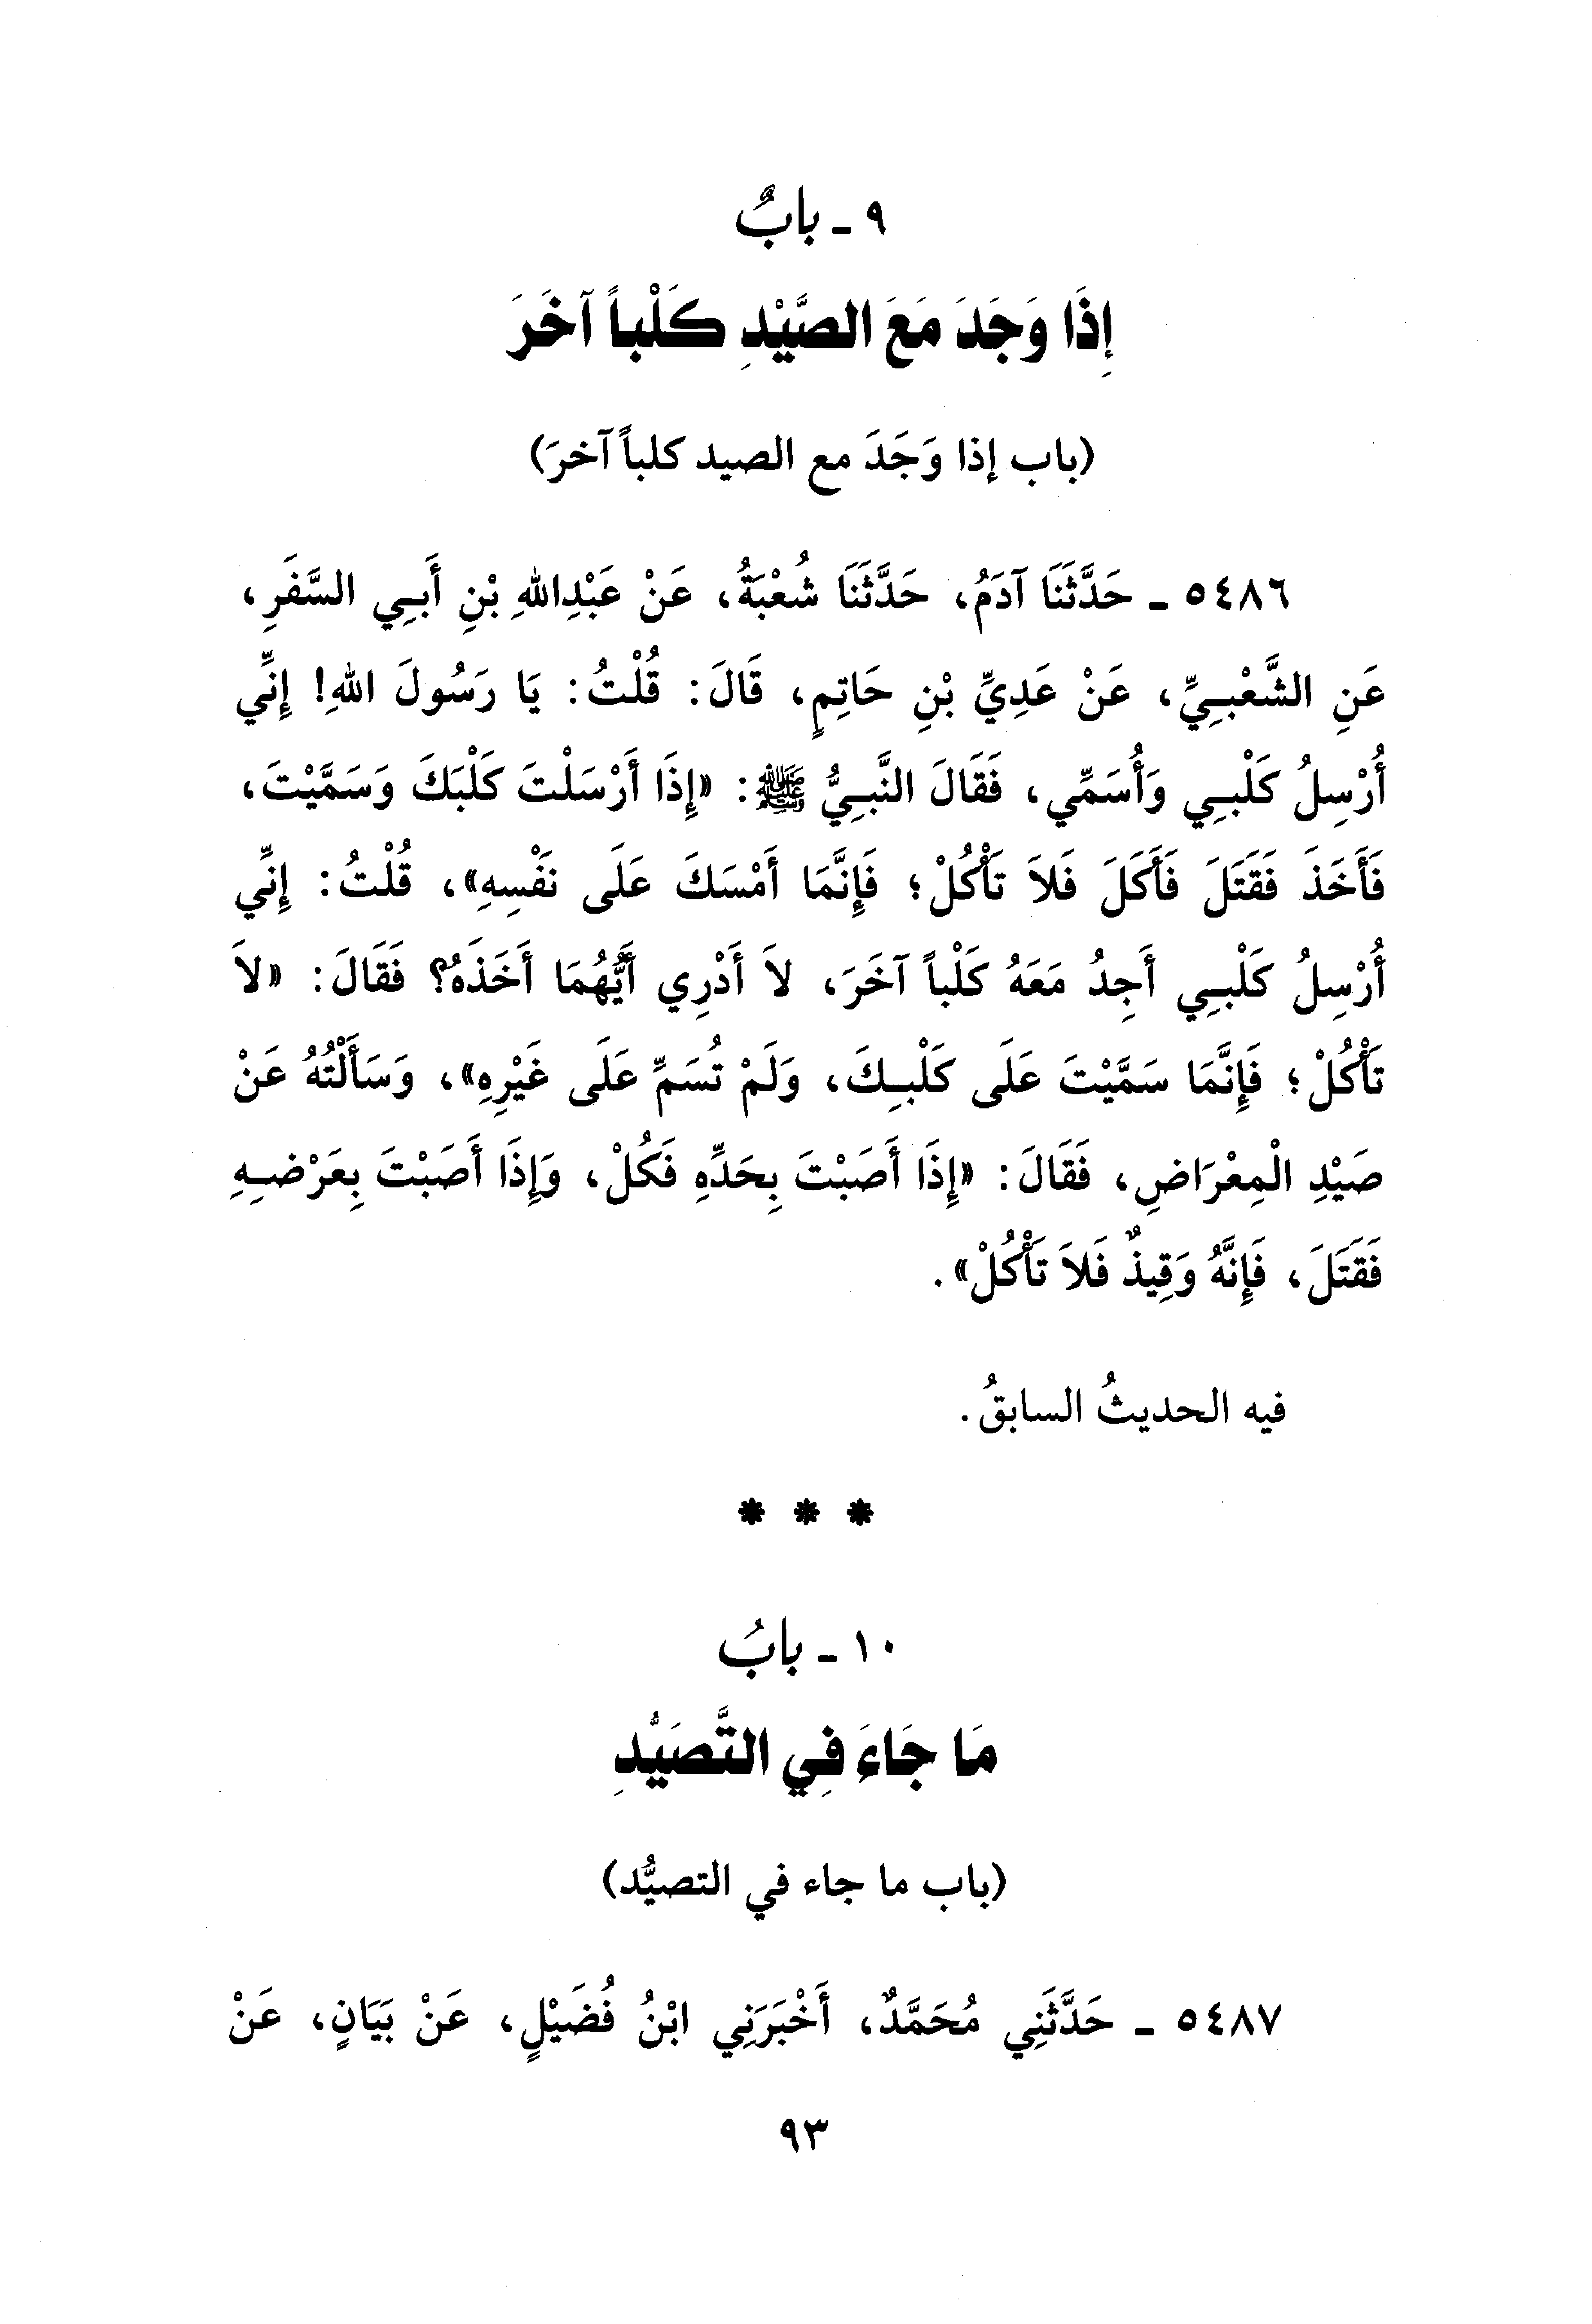 ٩ ـ بابٌ
إِذَا وَجَدَ مَعَ الصَّيْدِ كَلْباً آخَرَ
(باب إذا وَجَدَ مع الصيد كلباً آخرَ)
٥٤٨٦ ـ حَدَّثَنَا آدَمُ، حَدَّثَنَا شُعْبَةُ، عَنْ عَبْدِاللهِ بْنِ أَبِي السَّفَرِ،
عَنِ الشَّعْبِيِّ، عَنْ عَدِيِّ بْنِ حَاتِمٍ، قَالَ: قُلْتُ: يَا رَسُولَ اللهِ! إِنِّي
أُرْسِلُ كَلْبِي وَأُسَمِّي، فَقَالَ النَّبِيُّ ﷺ: «إِذَا أَرْسَلْتَ كَلْبَكَ وَسَمَّيْتَ،
فَأَخَذَ فَقَتَلَ فَأَكَلَ فَلاَ تَأْكُلْ؛ فَإِنَّمَا أَمْسَكَ عَلَى نَفْسِهِ»، قُلْتُ: إِنِّي
أُرْسِلُ كَلْبِي أَجِدُ مَعَهُ كَلْباً آخَرَ، لاَ أَدْرِي أَيُّهُمَا أَخَذَهُ؟ فَقَالَ: «لاَ
تَأْكُلْ؛ فَإِنَّمَا سَمَّيْتَ عَلَى كَلْبِكَ، وَلَمْ تُسَمِّ عَلَى غَيْرِهِ»، وَسَأَلْتُهُ عَنْ
صَيْدِ الْمِعْرَاضِ، فَقَالَ: «إِذَا أَصَبْتَ بِحَدِّهِ فَكُلْ، وَإِذَا أَصَبْتَ بِعَرْضِهِ
فَقَتَلَ، فَإِنَّهُ وَقِيذٌ فَلاَ تَأْكُلْ».
فيه الحديثُ السابقُ.
* * *
١٠ ـ بابُ
مَا جَاءَ فِي التَّصَيُّدِ
(باب ما جاء في التصيُّد)
٥٤٨٧ ـ حَدَّثَنِي مُحَمَّدٌ، أَخْبَرَنِي ابْنُ فُضَيْلٍ، عَنْ بَيَانٍ، عَنْ
٩٣